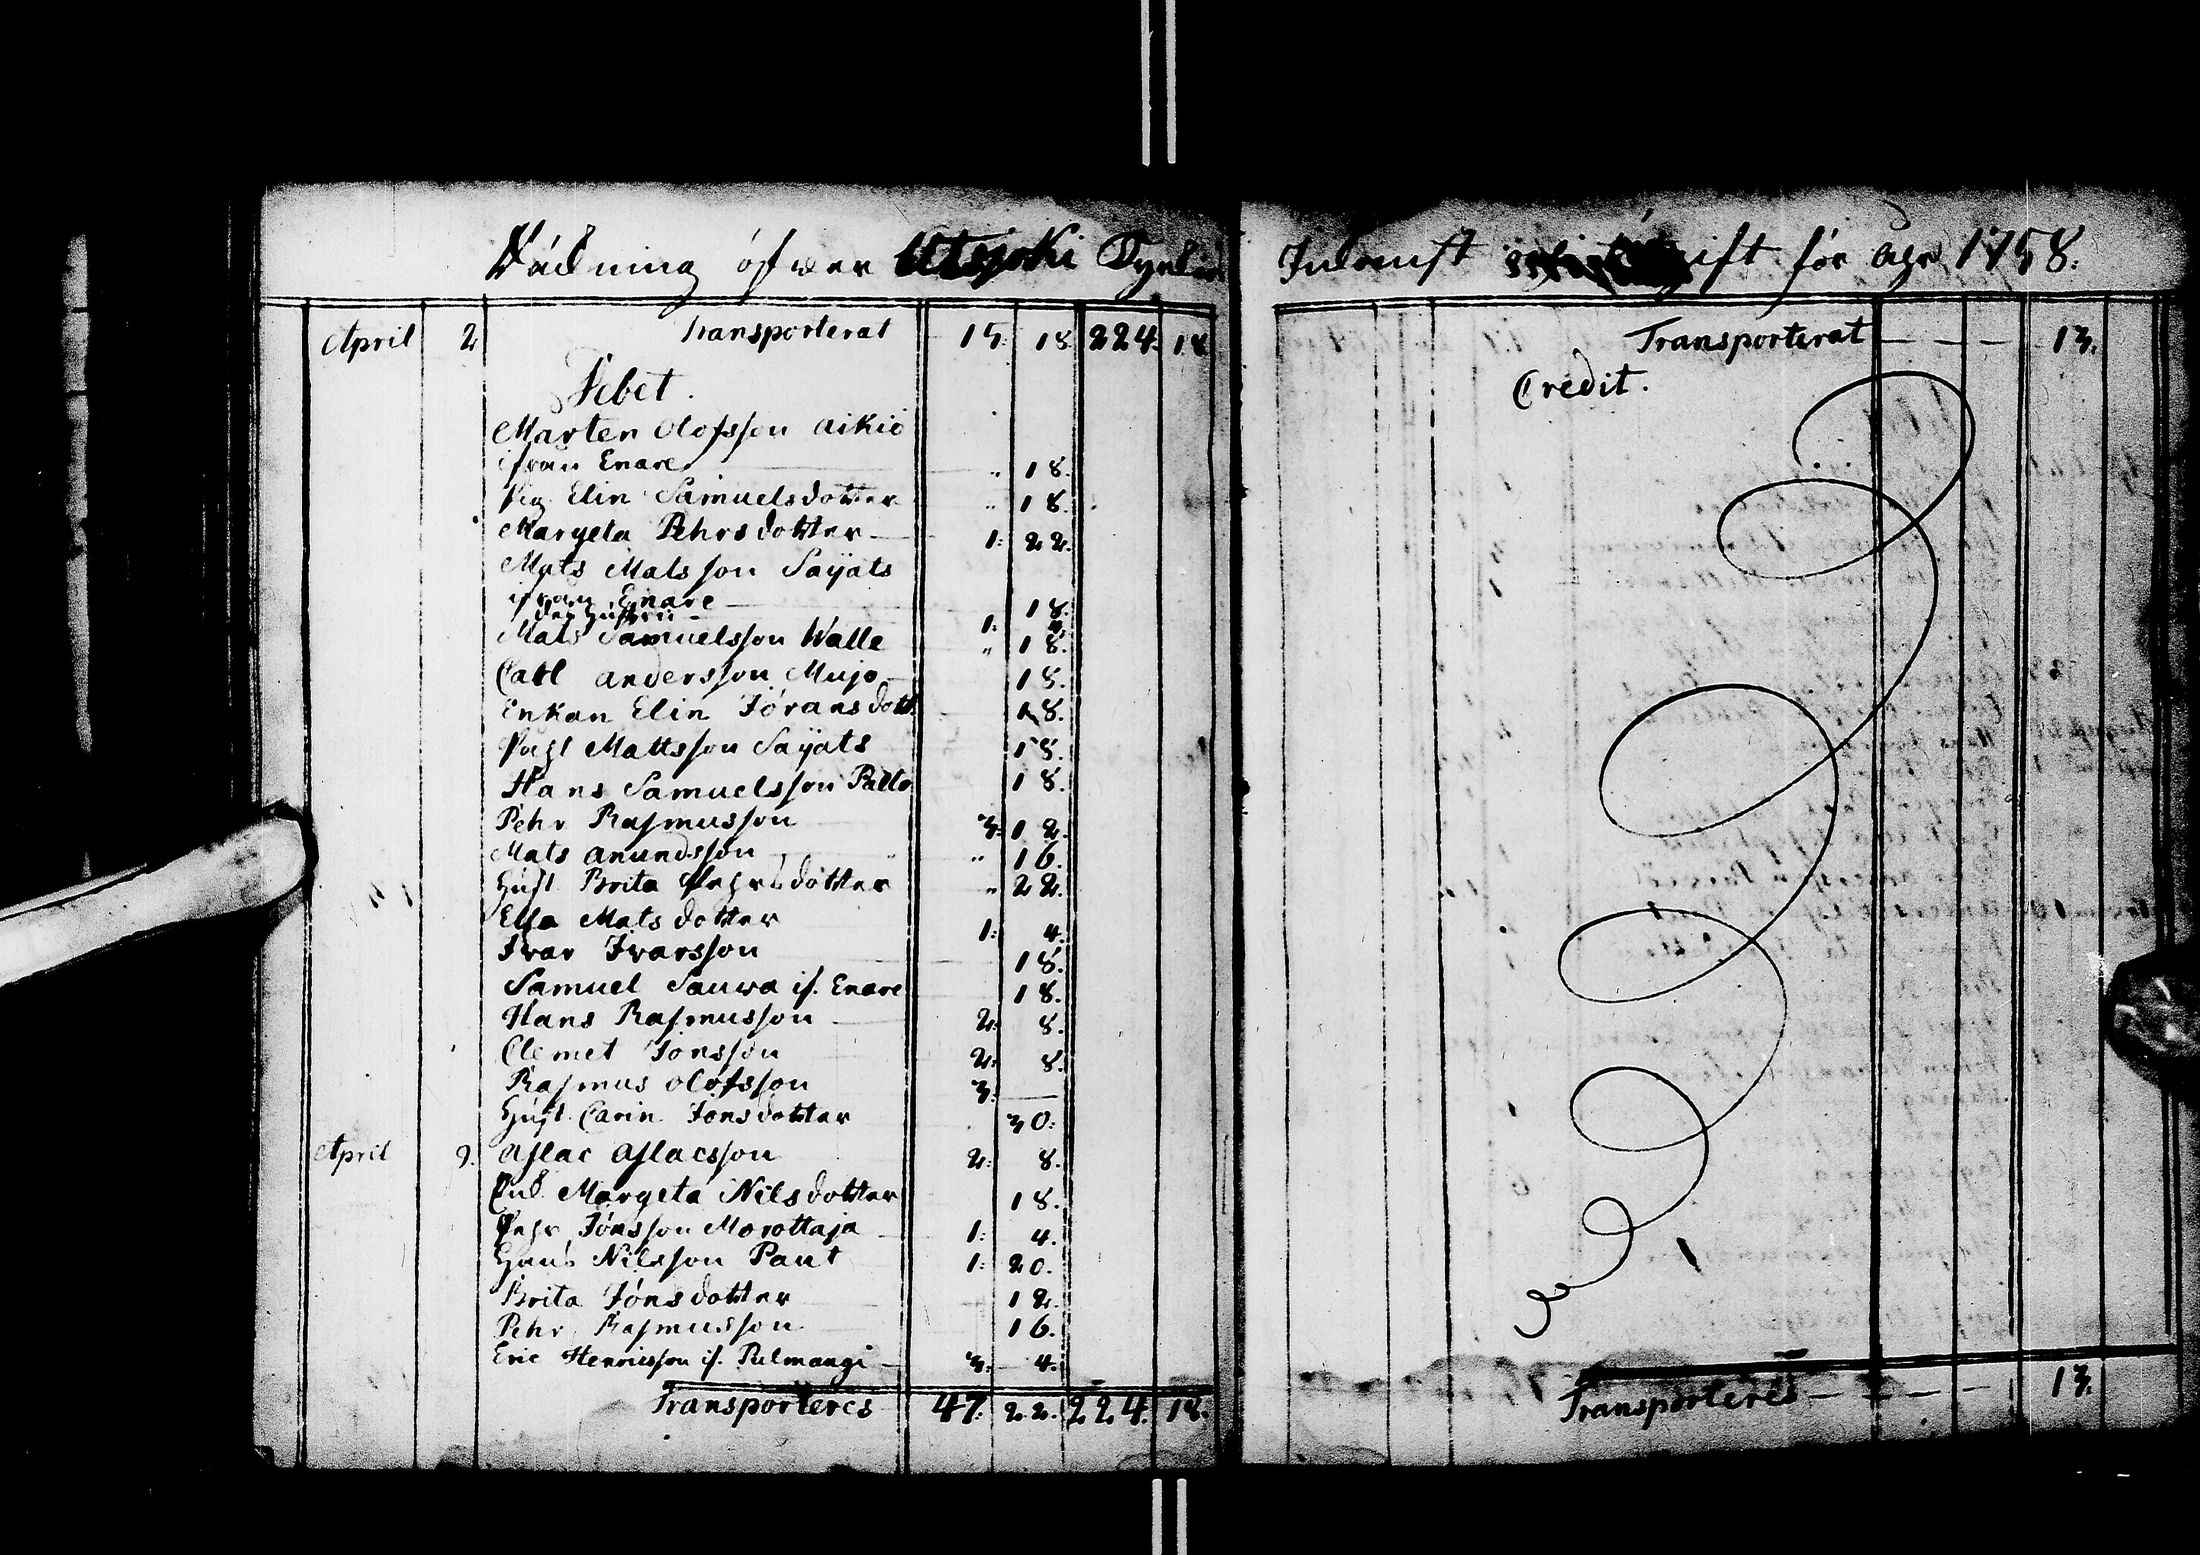 Räckning öfwer Utsjoki Kyrkio
April 2 Transporterat 15: 18 224: 18
Debet.
Marten Olofsson Aikio
ifrån Enare „ 18.
Pig. Elin Samuelsdotter „ 18.
Margeta Pehrsdotter 1: 22.
Mats Matsson Sayats
ifrån Enare 18.
des hustru 1: 4.
Mats Samuelsson Walle „ 18.
Carl Andersson Mujo 18.
Enkan Elin Joransdott. 18.
Pehl Mattsson Sayats 18.
Hans Samuelsson Palto 18.
Pehr Rasmusson 3: 12.
Mats Anundsson „ 16.
Hust. Brita Pehrsdotter „ 22.
Ella Matsdotter 1: 4.
Ivar Ivarsson 18.
Samuel Sauwa if. Enare 18.
Hans Rasmusson 2: 8.
Clemet Jonsson 2: 8.
Rasmus Olofsson 3: —
Hust. Carin Jonsdotter 30:
April 9. Aslac Aslacsson 2: 8.
Margeta Nilsdotter 18.
Pehr Jönsson Morottaja 1: 4.
Hans Nilsson Paut 1: 20.
Brita Jönsdotter 12.
Pehr Rasmusson 16.
Eric Henricsson if. Pulmangi 3: 4.
Transporteres 47: 22. 224. 18.
Inkomst för åhr 1758.
Transporterat — — — 13.
Credit.
Transporteres — — — 13.